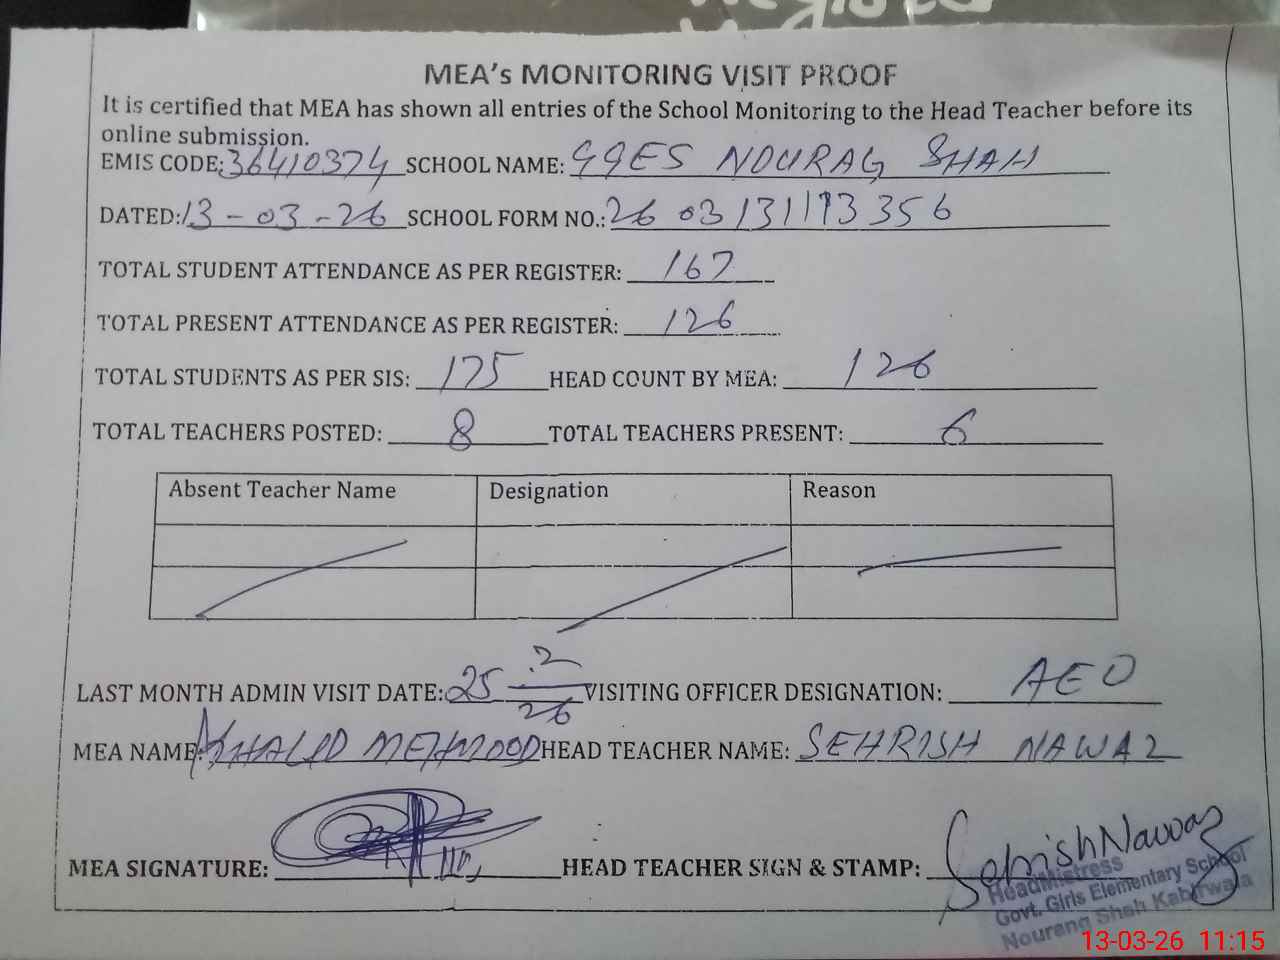 MEA's MONITORING VISIT PROOF
It is certified that MEA has shown all entries of the School Monitoring to the Head Teacher before its
online submission.
EMIS CODE: 36410374 SCHOOL NAME: GGES NOURAG SHAH
DATED: 13-03-26 SCHOOL FORM NO.: 26 03 131113356
TOTAL STUDENT ATTENDANCE AS PER REGISTER: 167
TOTAL PRESENT ATTENDANCE AS PER REGISTER: 126
TOTAL STUDENTS AS PER SIS: 175 HEAD COUNT BY MEA: 126
TOTAL TEACHERS POSTED: 8 TOTAL TEACHERS PRESENT: 6
Absent Teacher Name Designation Reason
LAST MONTH ADMIN VISIT DATE: 25 2/26 VISITING OFFICER DESIGNATION: AEO
MEA NAME: KHALID MEHMOOD HEAD TEACHER NAME: SEHRISH NAWAZ
MEA SIGNATURE: HEAD TEACHER SIGN & STAMP: Sehrish Nawaz
HeadMistress
Govt. Girls Elementary School
Nourang Shah Kabirwala
13-03-26 11:15